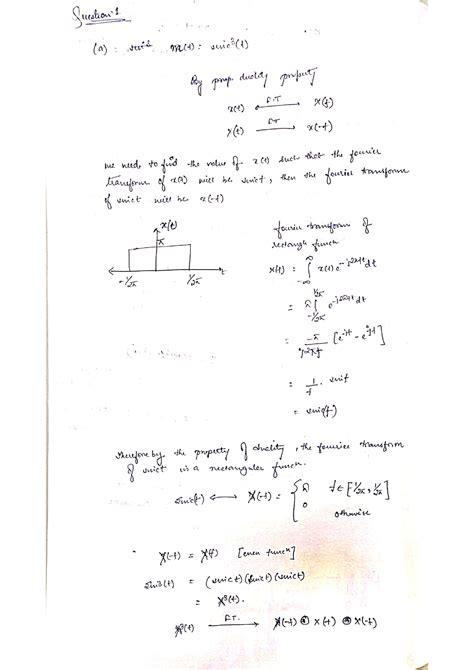 Question-1
(a): m(t) = sinc³(t)
By duality property
x(t) ⟷ X(f)
F.T
X(t) ⟶ x(-f)
F.T
we need to find the value of x(t) such that the fourier
transform of x(t) will be sinct, then the fourier transform
of sinct will be x(-f)
x(t)
π
-1/2π
1/2π
t
fourier transform of
rectangle funcn
X(f) = ∫ x(t) e^-j2πft dt
∞
-∞
= π ∫ e^-j2πft dt
1/2π
-1/2π
= -π/j2πf [e^-jf - e^jf]
= 1/f . sinf
= sinc(f)
Therefore by the property of duality, the fourier transform
of sinct is a rectangular funcn.
sinc(t) ⟷ X(-f) = { π f∈[-1/2π, 1/2π]
0 otherwise
X(-f) = X(f) [even funcn]
sinc³(t) = (sinct)(sinct)(sinct)
= X³(t).
X³(t) ⟶ X(-f) * X(f) * X(-f)
F.T.